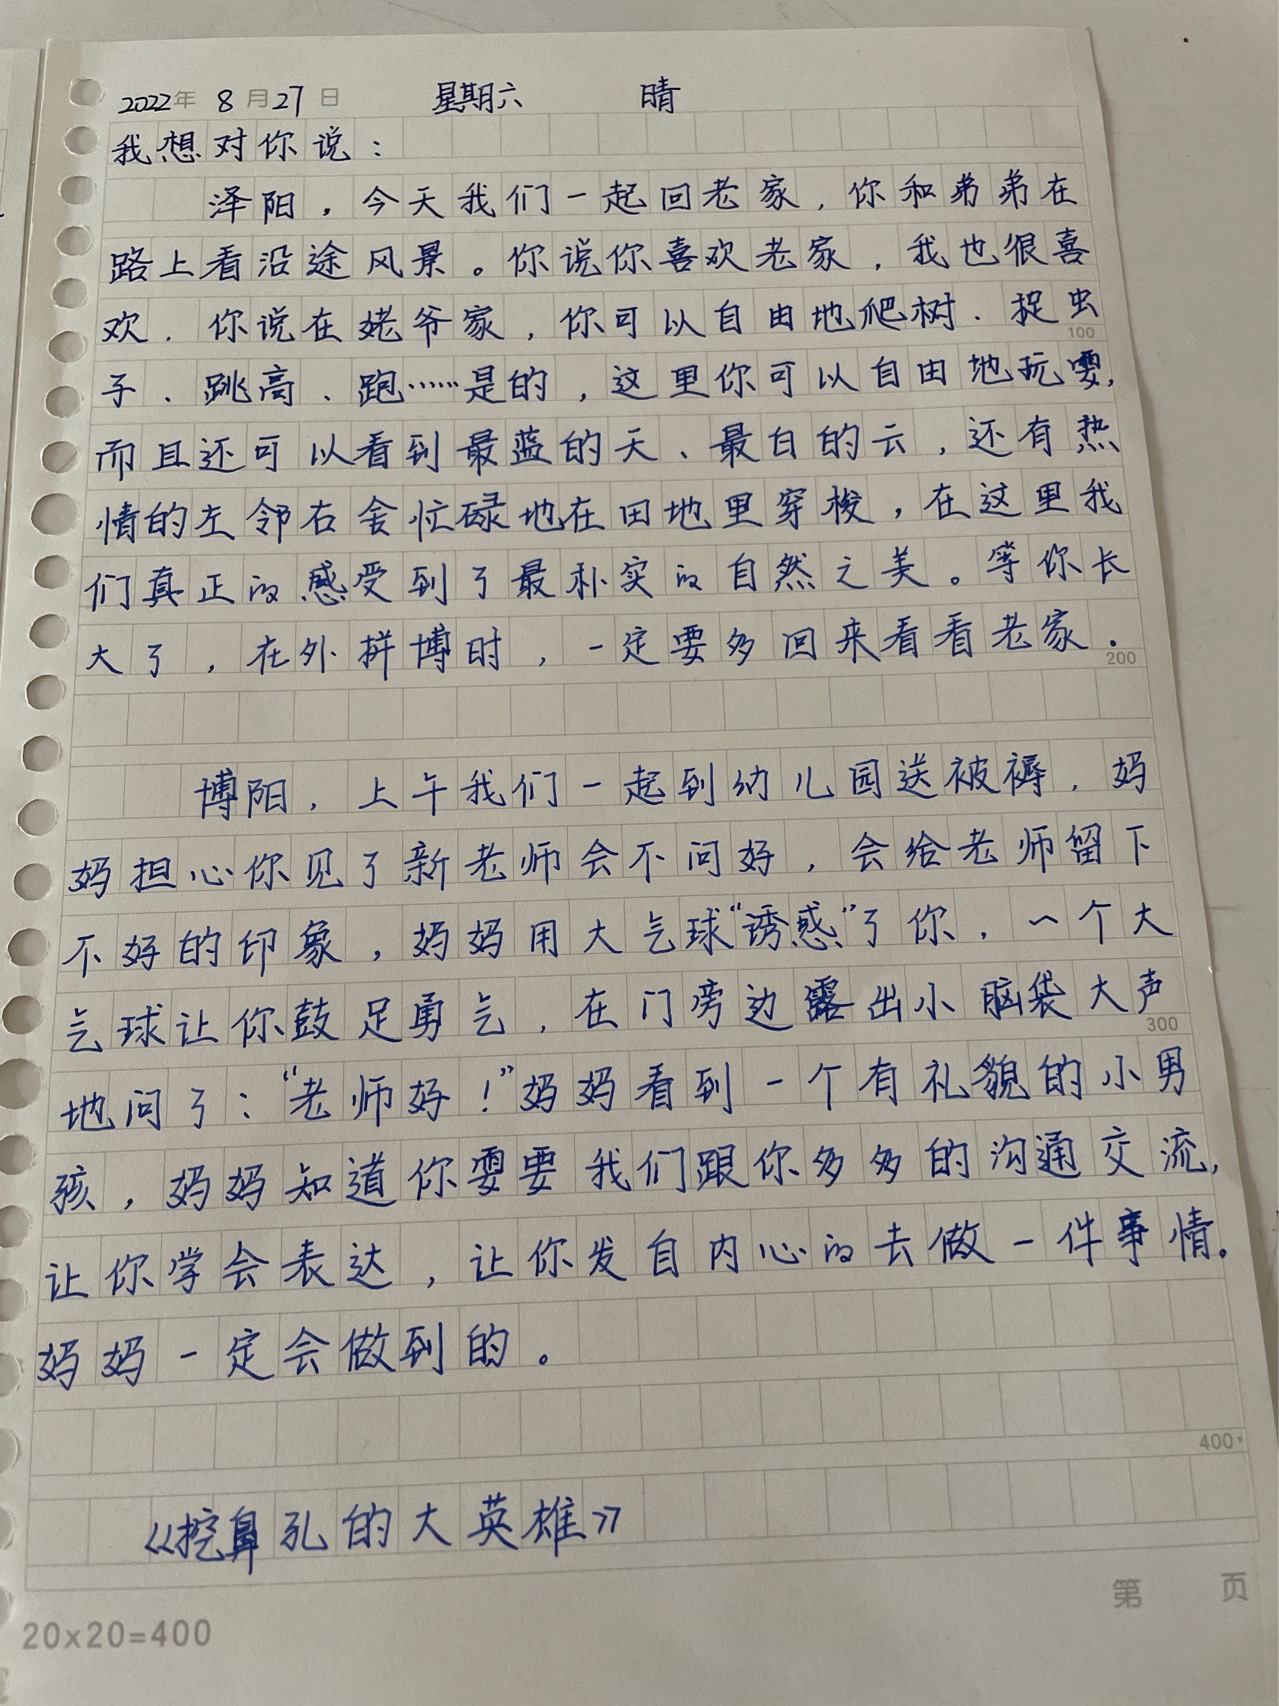 2022年 8月27日 星期六 晴
我想对你说：
泽阳，今天我们一起回老家，你和弟弟在
路上看沿途风景。你说你喜欢老家，我也很喜
欢．你说在姥爷家，你可以自由地爬树．捉虫
子、跳高、跑……是的，这里你可以自由地玩耍，
而且还可以看到最蓝的天、最白的云，还有热
情的左邻右舍忙碌地在田地里穿梭，在这里我
们真正的感受到了最朴实的自然之美。等你长
大了，在外拼博时，一定要多回来看看老家．
博阳，上午我们一起到幼儿园送被褥．妈
妈担心你见了新老师会不问好，会给老师留下
不好的印象，妈妈用大气球“诱惑”了你，一个大
气球让你鼓足勇气，在门旁边露出小脑袋大声
地问了：“老师好！”妈妈看到一个有礼貌的小男
孩，妈妈知道你需要我们跟你多多的沟通交流，
让你学会表达，让你发自内心的去做一件事情。
妈妈一定会做到的。
《挖鼻孔的大英雄》
100
200
300
400
20×20=400
第 页